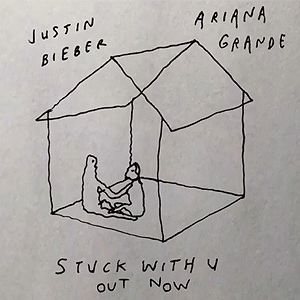 JUSTIN
BIEBER
ARIANA
GRANDE
STUCK WITH U
OUT NOW